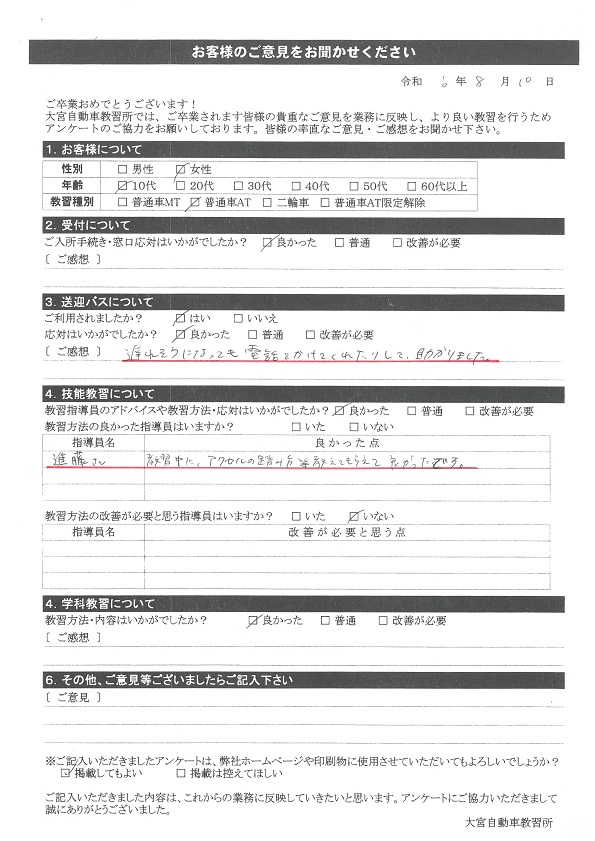 お客様のご意見をお聞かせください
令和 6 年 8 月 10 日
ご卒業おめでとうございます!
大宮自動車教習所では、ご卒業されます皆様の貴重なご意見を業務に反映し、より良い教習を行うため
アンケートのご協力をお願いしております。皆様の率直なご意見・ご感想をお聞かせ下さい。
1. お客様について
性別 □ 男性 ☑ 女性
年齢 ☑ 10代 □ 20代 □ 30代 □ 40代 □ 50代 □ 60代以上
教習種別 □ 普通車MT ☑ 普通車AT □ 二輪車 □ 普通車AT限定解除
2. 受付について
ご入所手続き・窓口応対はいかがでしたか? ☑ 良かった □ 普通 □ 改善が必要
[ ご感想 ]
3. 送迎バスについて
ご利用されましたか? ☑ はい □ いいえ
応対はいかがでしたか? ☑ 良かった □ 普通 □ 改善が必要
[ ご感想 ] 遅れそうになっても電話をかけてくれたりして、助かりました。
4. 技能教習について
教習指導員のアドバイスや教習方法・応対はいかがでしたか? ☑ 良かった □ 普通 □ 改善が必要
教習方法の良かった指導員はいますか? □ いた □ いない
指導員名 良かった点
進藤さん 教習中に、アクセルの踏み方等教えてもらえて良かったです。
教習方法の改善が必要と思う指導員はいますか? □ いた ☑ いない
指導員名 改善が必要と思う点
4. 学科教習について
教習方法・内容はいかがでしたか? ☑ 良かった □ 普通 □ 改善が必要
[ ご感想 ]
6. その他、ご意見等ございましたらご記入下さい
[ ご意見 ]
※ご記入いただきましたアンケートは、弊社ホームページや印刷物に使用させていただいてもよろしいでしょうか?
☑ 掲載してもよい □ 掲載は控えてほしい
ご記入いただきました内容は、これからの業務に反映していきたいと思います。アンケートにご協力いただきまして
誠にありがとうございました。
大宮自動車教習所